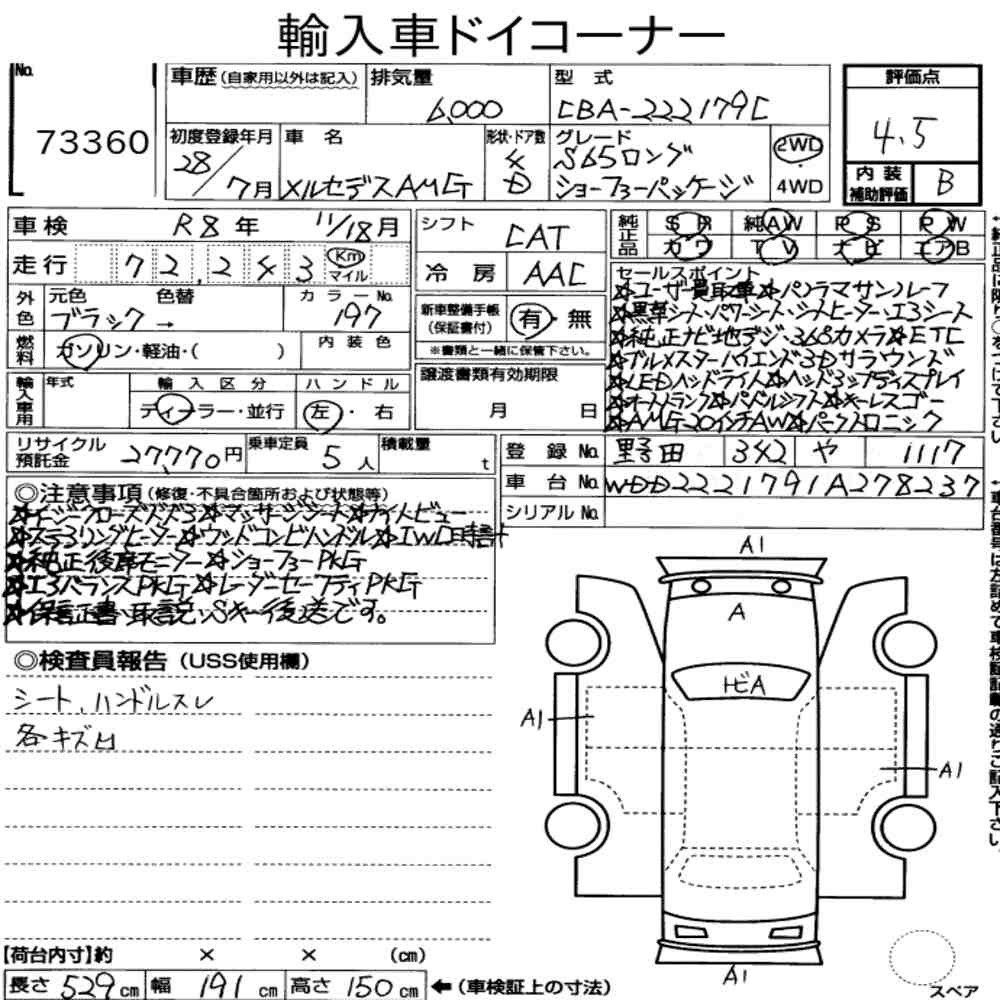 輸入車ドイコーナー
No.
73360
車歴(自家用以外は記入)
排気量
6,000
型式
CBA-222179C
評価点
4.5
内装補助評価
B
初度登録年月
28/7月
車名
メルセデスAMG
形状・ドア数
4
D
グレード
S65ロング
ショーファーパッケージ
2WD
・
4WD
車検
R8年 11/18月
走行
72,243
Km
マイル
外色
元色
色替
ブラック→
カラーNo.
197
燃料
ガソリン・軽油・( )
内装色
輸入車用
年式
輸入区分
ディーラー・並行
ハンドル
左・右
シフト
CAT
冷房
AAC
新車整備手帳
(保証書付)
有・無
※書類と一緒に保管下さい。
譲渡書類有効期限
月 日
純正品
SR 純AW PS PW
カワ TV ナビ エアB
セールスポイント
☆ユーザー買取車☆パノラマサンルーフ
☆黒革シート・パワーシート・シートヒーター・エアシート
☆純正ナビ地デジ・360カメラ☆ETC
☆ブルメスターハイエンド3Dサラウンド
☆LEDヘッドライト☆ヘッドアップディスプレイ
☆オートトランク☆パドルシフト☆キーレスゴー
☆AMG20インチAW☆パークトロニック
リサイクル預託金
27,770円
乗車定員
5人
積載量
t
登録No.
野田 342 や 1117
車台No.
WDD2221791A278237
シリアルNo.
◎注意事項(修復・不具合箇所および状態等)
☆イージークローズドドア☆マッサージシート☆ナイトビュー
☆ステアリングヒーター☆ウッドコンビハンドル☆IWC時計
☆純正後席モニター☆ショーファーPKG
☆エアバランスPKG☆レーダーセーフティPKG
☆保証書、取説、Sキー後送です。
◎検査員報告(USS使用欄)
シート、ハンドルスレ
各キズ凹
A1
A
トビA
A1
A1
A1
【荷台内寸】約 × × (cm)
長さ529cm 幅191cm 高さ150cm ←(車検証上の寸法)
スペア